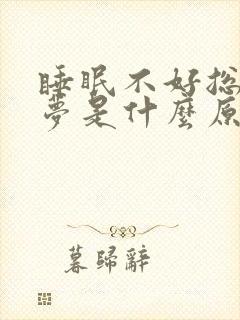 睡眠不好總
夢是什麼原
暮歸辭